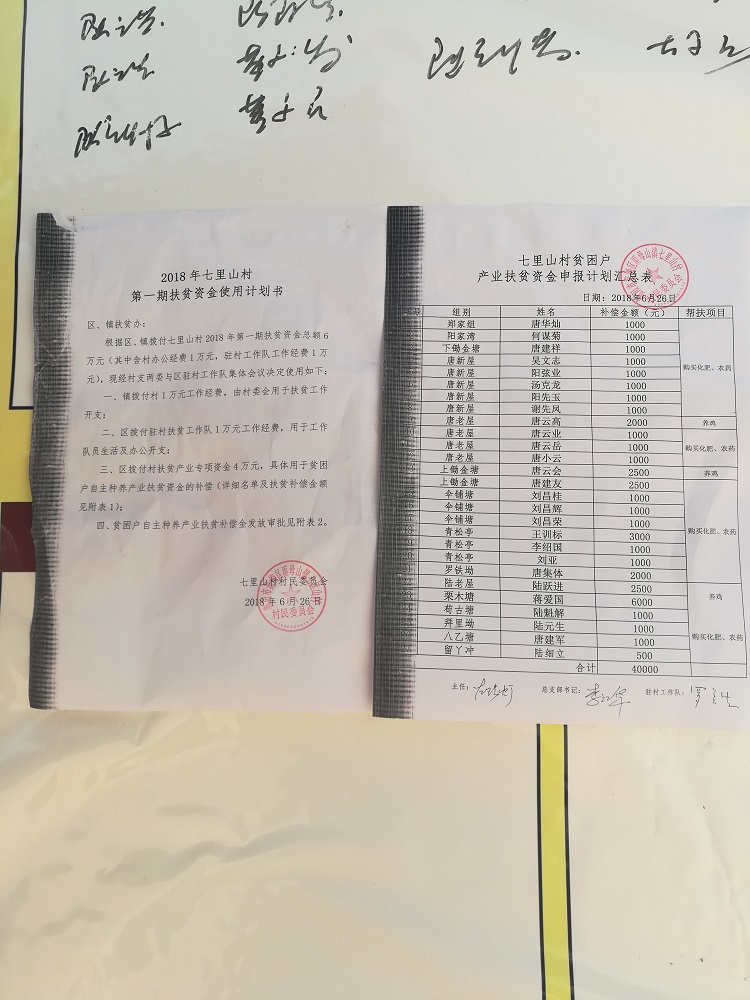 2018 年七里山村
第一期扶贫资金使用计划书
区、镇扶贫办：
根据区、镇拨付七里山村 2018 年第一期扶贫资金总额 6
万元（其中含村办公经费 1 万元，驻村工作队工作经费 1 万
元），现经村支两委与区驻村工作队集体会议决定使用如下：
一、镇拨付村 1 万元工作经费，由村委会用于扶贫工作
开支；
二、区拨付驻村扶贫工作队 1 万元工作经费，用于工作
队员生活及办公开支；
三、区拨付村扶贫产业专项资金 4 万元，具体用于贫困
户自主种养产业扶贫资金的补偿（详细名单及扶贫补偿金额
见附表 1）；
四、贫困户自主种养产业扶贫补偿金发放审批见附表 2。
七里山村村民委员会
2018 年 6 月 26 日
村民委员会
七里山村贫困户
产业扶贫资金申报计划汇总表
日期：2018年6月26日
组别 姓名 补偿金额（元） 帮扶项目
郑家组 唐华灿 1000
阳家湾 何谋菊 1000
下锄金塘 唐建祥 1000
唐新屋 吴文志 1000 购买化肥、农药
唐新屋 阳弦业 1000
唐新屋 汤克龙 1000
唐新屋 阳先玉 1000
唐新屋 谢先凤 1000
唐老屋 唐云高 2000 养鸡
唐老屋 唐云业 1000
唐老屋 唐云岳 1000 购买化肥、农药
唐老屋 唐小云 1000
上锄金塘 唐云会 2500 养鸡
上锄金塘 唐建友 2500
伞铺塘 刘昌桂 1000
伞铺塘 刘昌辉 1000
伞铺塘 刘昌荣 1000
青松亭 王训标 3000 购买化肥、农药
青松亭 李绍国 1000
青松亭 刘亚 1000
罗铁坳 唐集体 2000
陆老屋 陆跃进 2500
栗木塘 蒋爱国 6000 养鸡
荀古塘 陆魁解 1000
拜里坳 陆元生 1000
八乙塘 唐建军 1000 购买化肥、农药
留丫冲 陆细立 500
合计 40000
主任： 总支部书记： 驻村工作队：